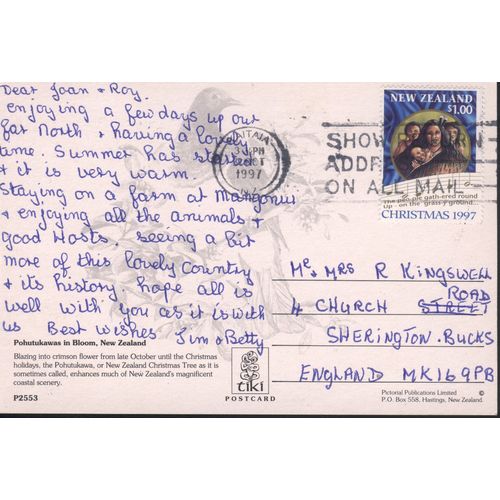 Dear Joan & Roy.
enjoying a few days up our
far North & having a lovely
time. Summer has started
& it is very warm.
Staying on a farm at Mangonui
& enjoying all the animals &
good Hosts. Seeing a bit
more of this lovely Country
& its history. hope all is
well with you as it is with
us Best Wishes Jim & Betty
Pohutukawas in Bloom, New Zealand
Blazing into crimson flower from late October until the Christmas
holidays, the Pohutukawa, or New Zealand Christmas Tree as it is
sometimes called, enhances much of New Zealand's magnificent
coastal scenery.
P2553
tiki
POSTCARD
KAITAIA
PM
OCT
1997
N.Z.
SHOW
ADD
ON ALL MAIL
NEW ZEALAND
$1.00
The peo-ple gath-ered round
Up - on the grass-y ground
CHRISTMAS 1997
Mr & MRS R KINGSWELL
ROAD
4 CHURCH STREET
SHERINGTON. BUCKS
ENGLAND MK169PB
Pictorial Publications Limited ©
P.O. Box 558, Hastings, New Zealand.